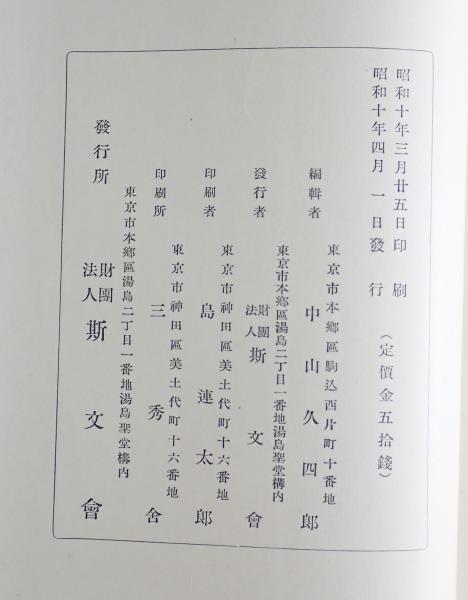 昭和十年三月廿五日印刷
昭和十年四月一日發行
(定價金五拾錢)
東京市本鄕區駒込西片町十番地
編輯者 中山久四郎
東京市本鄕區湯島二丁目一番地湯島聖堂構內
發行者 財團法人 斯文會
東京市神田區美土代町十六番地
印刷者 島連太郎
東京市神田區美土代町十六番地
印刷所 三秀舍
東京市本鄕區湯島二丁目一番地湯島聖堂構內
發行所 財團法人 斯文會